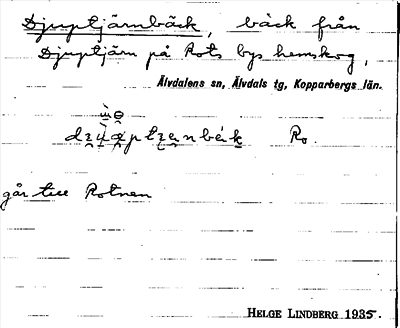 Djuptjärnbäck, bäck från
Djuptjärn på Rots bys hemskog,
Älvdalens sn, Älvdals tg, Kopparbergs län.
Ro.
går till Rotnen
HELGE LINDBERG 1935.